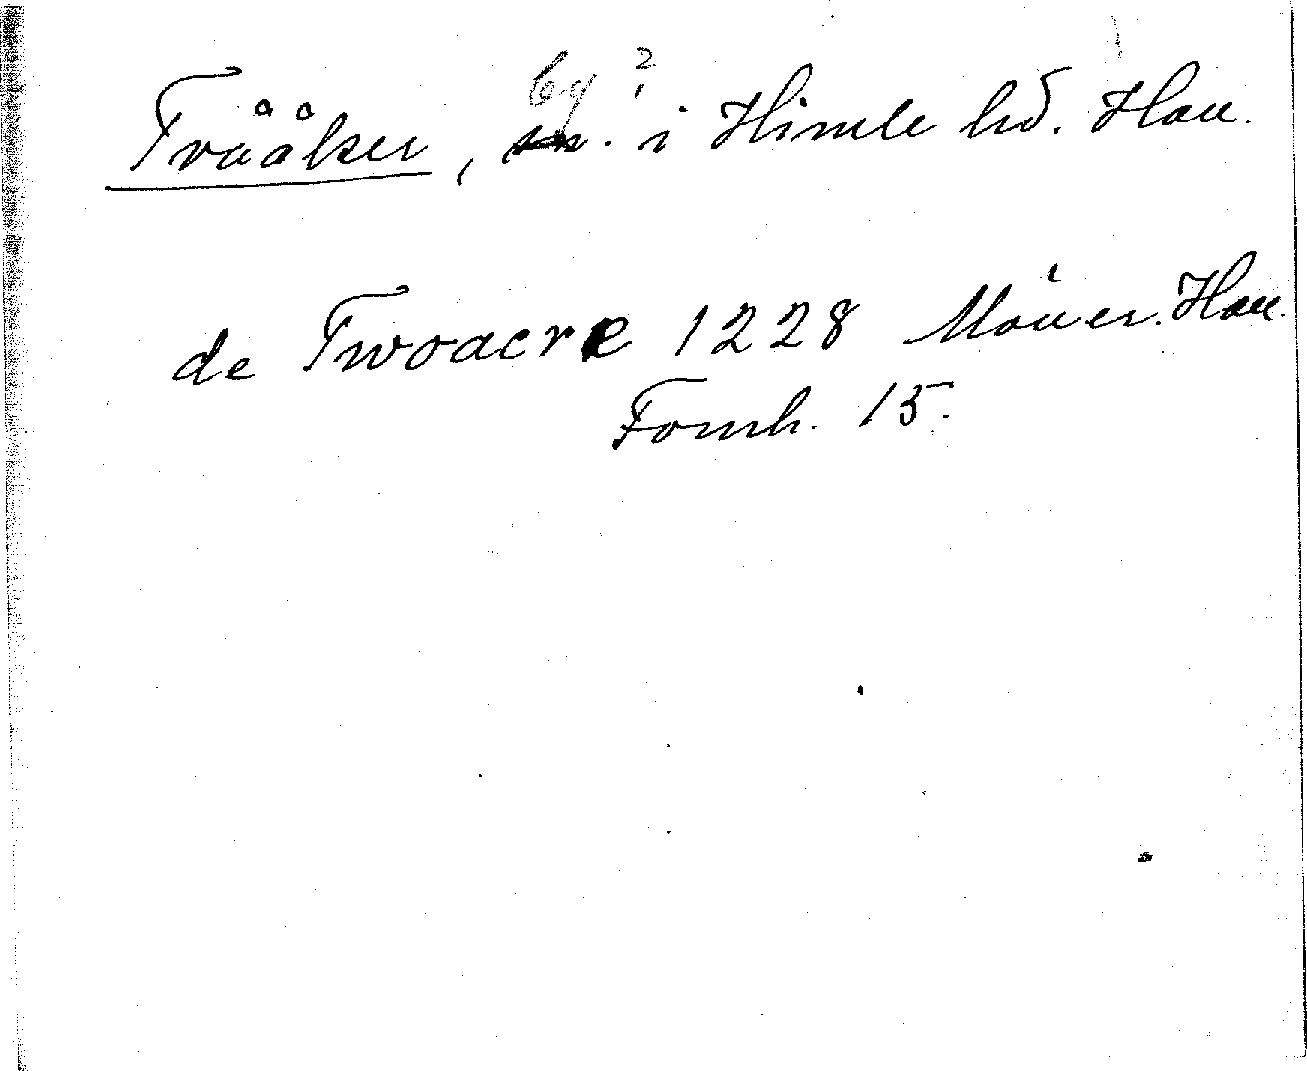 Tvååker, by? sn. i Himle hd. Hall.
de Twoacre 1228 Mön er. Hall.
Fornh. 15.